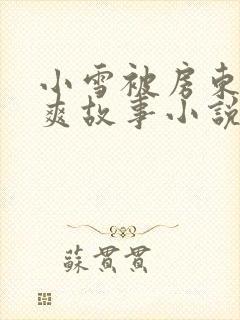 小雪被房东
爽故事小說
蘇貫貫